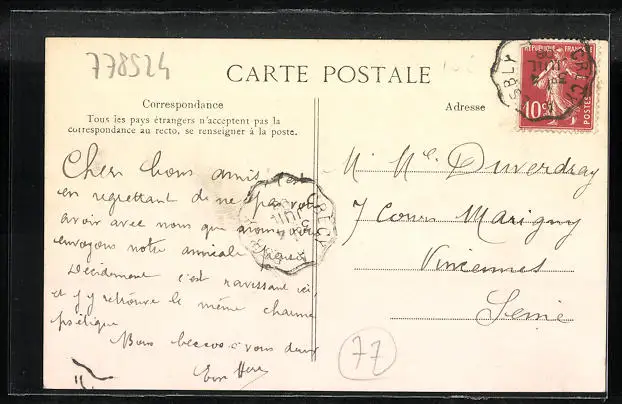 778524
CARTE POSTALE
Correspondance
Tous les pays étrangers n'acceptent pas la
correspondance au recto, se renseigner à la poste.
Adresse
REPUBLIQUE FRANÇAISE
10 c
POSTES
ESBLY
CRÉCY
JUIL
Chers bons amis, c'est
en regrettant de ne pas vous
avoir avec nous que nous vous
envoyons notre amical
Décidément c'est ravissant ici,
et j'y retrouve le même charme
poétique
Bons à vous deux
M. Duverdray
7 Cours Marigny
Vincennes
Seine
CRÉCY
JUIL
77